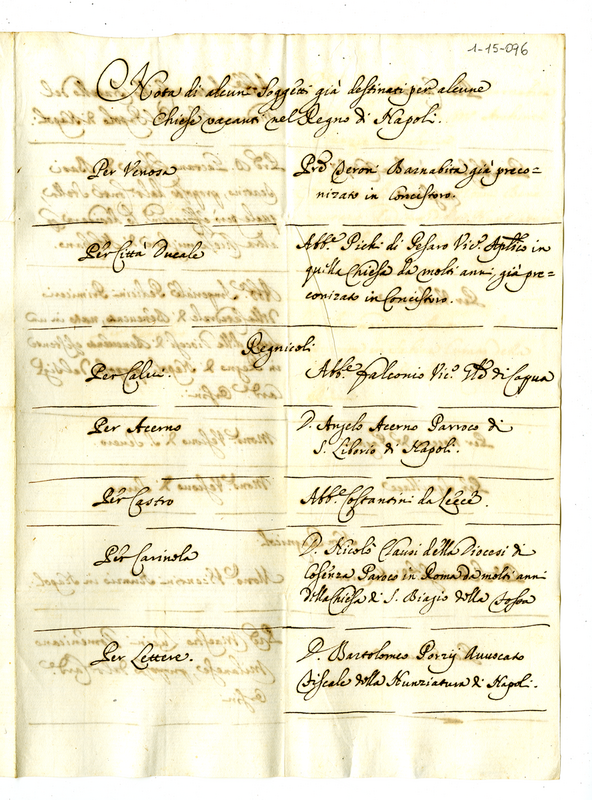 1-15-096
Nota di alcuni Soggetti già destinati per alcune
Chiese vacanti nel Regno di Napoli.
Per Venosa
Prē Barnabita già preco=
nizato in Concistoro.
Per Città Ducale
Abb.e di Pesaro Vic.o Aplico in
quella Chiesa da molti anni, già pre=
conizato in Concistoro.
Regnicoli
Per Calvi.
Abb.e Falconio Vic.o di Capua
Per Acerno
D. Angelo Acerno Parroco di
S. Liborio di Napoli.
Per Castro
Abb.e Costantini da Lecce.
Per Carinola
D. Nicolò Clausi della Diocesi di
Cosenza Paroco in Roma da molti anni
della Chiesa di S. Biagio della Fossa
Per Lettere.
D. Bartolomeo Avvocato
Fiscale della Nunziatura di Napoli.